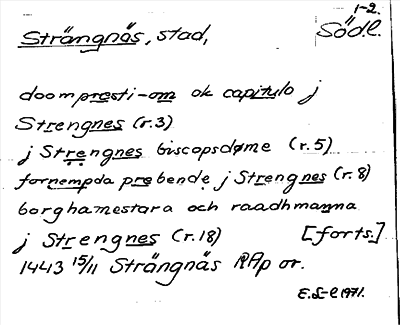 1-2.
Strängnäs, stad, Södl.
doompresti-om ok capitulo j
Strengnes (r.3)
j Strengnes biscopsdøme (r.5)
fornempda prebende j Strengnes (r.8)
borghamestara och raadhmanna
j Strengnes (r.18) [forts.]
1443 15/11 Strängnäs RAp or.
E.S-e 1971.